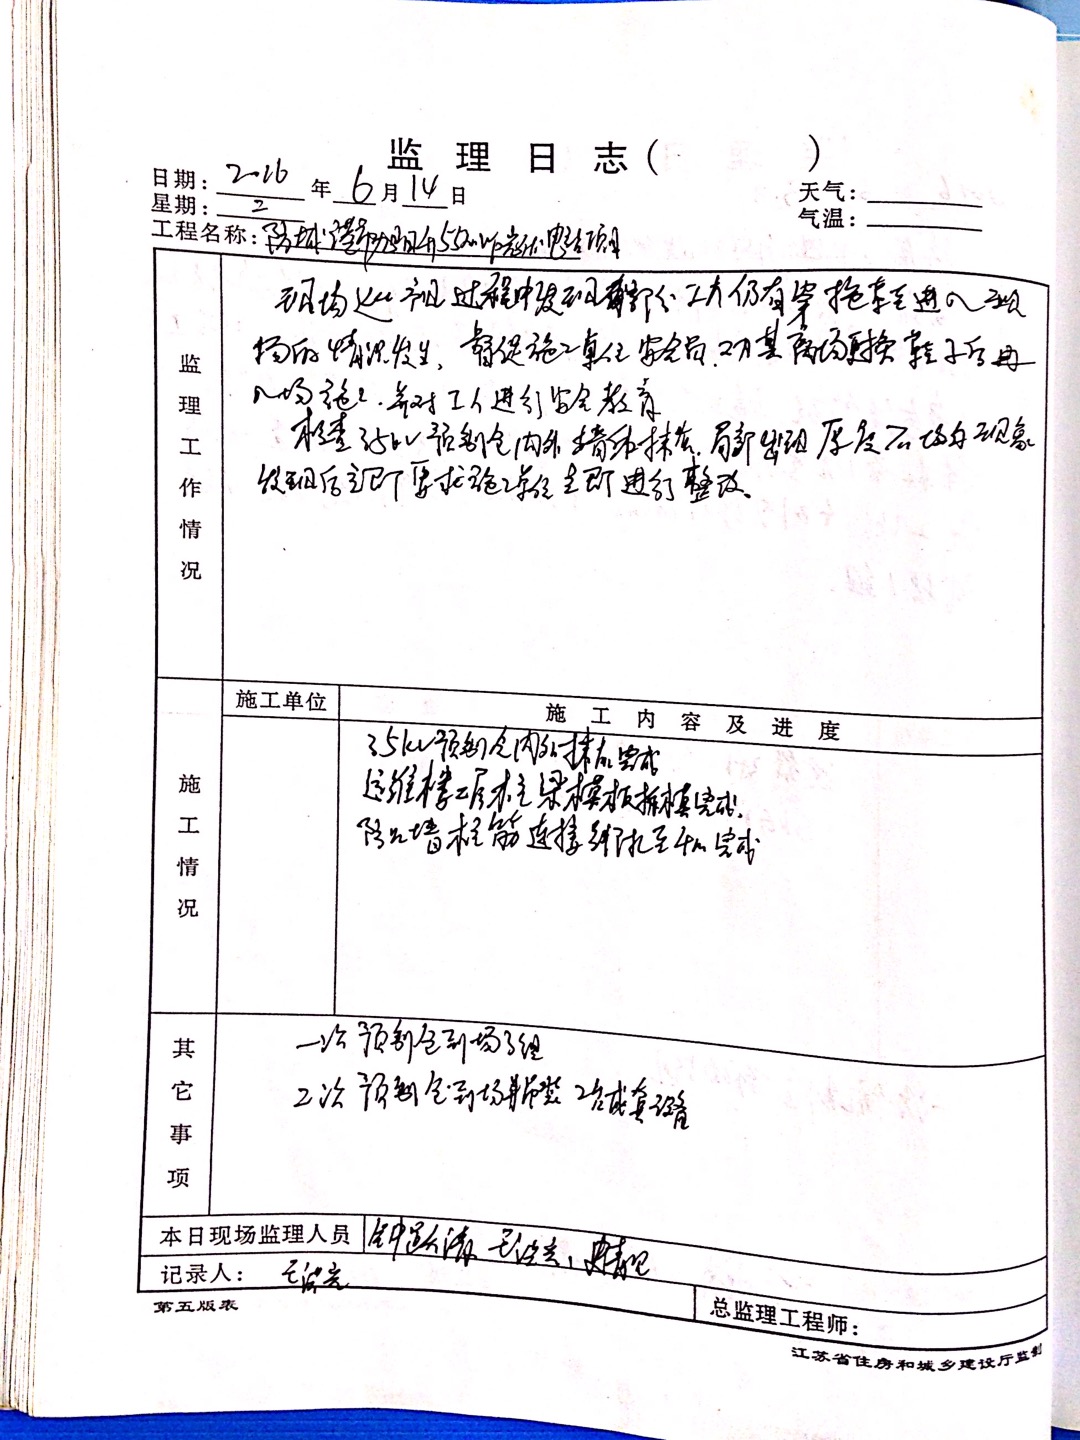 监理日志(　　　)
日期: 2016 年 6 月 14 日
天气:
星期: 2
气温:
工程名称:
监理工作情况
现场 过程中发现有部分工人仍有穿拖鞋进入现
场的情况发生，督促施工单位安全员，对其离场更换鞋子后再
入场施工.并对工人进行安全教育
检查35kv预制仓内外墙 抹灰,局部出现厚度不均匀现象
发现后立即要求施工单位立即进行整改。
施工情况
施工单位
施工内容及进度
35kv预制仓内外抹灰完成
运维楼二层柱梁模板拆模完成.
防火墙柱筋连接绑扎至4m完成
其它事项
一次预制仓到场3组
2次预制仓到场并吊装 2台成套设备
本日现场监理人员
记录人:
总监理工程师:
第五版表
江苏省住房和城乡建设厅监制